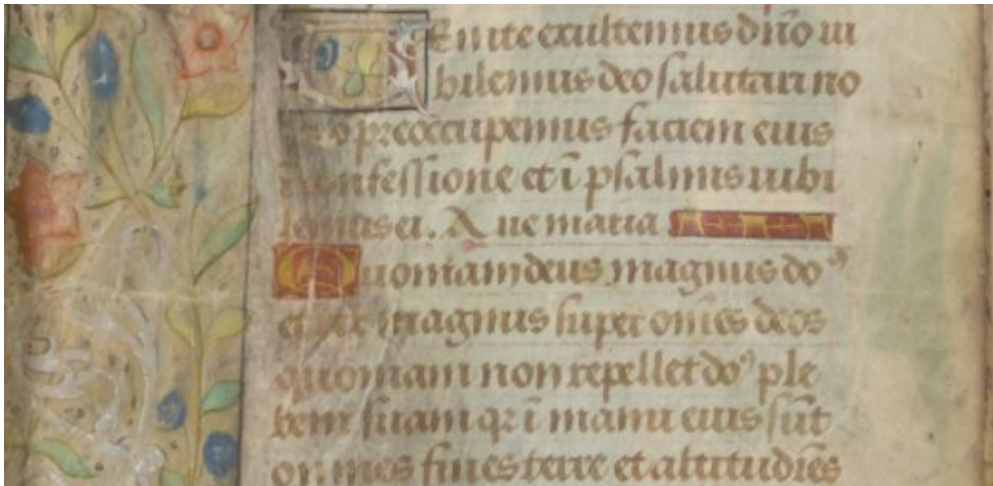 Enite exultemus dño iu
bilemus deo salutari no
preoccupemus faciem eius
confessione et ī psalmis iubi
lemus ei. Aue maria
Quoniam deus magnus do⁹
et rex magnus super om̅es deos
quoniam non repellet do⁹ ple
bem suam qr ī manu eius sūt
omnes fines terre et altitudīes